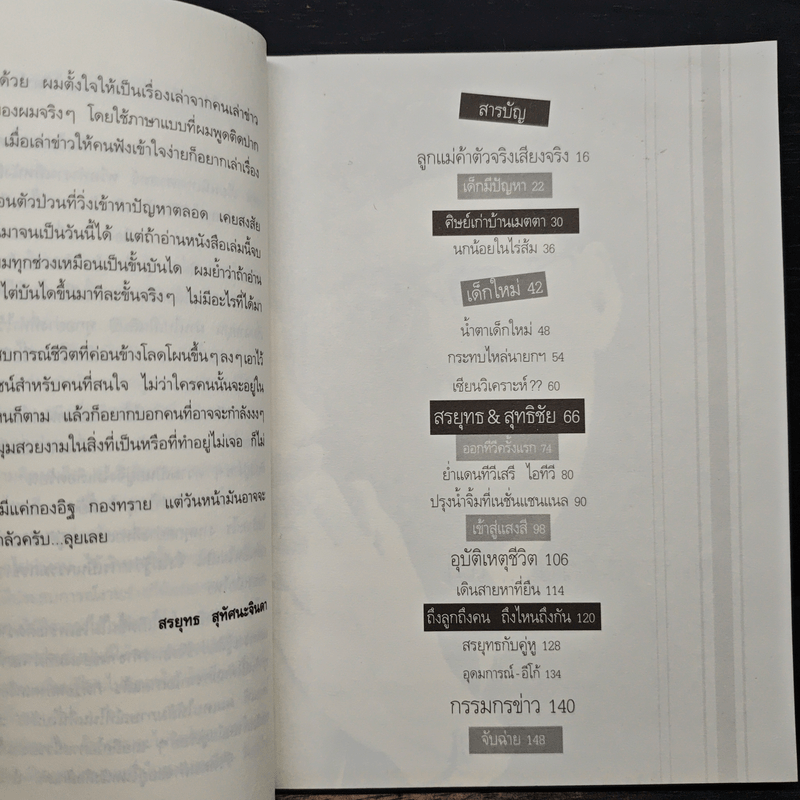 ด้วย ผมตั้งใจให้เป็นเรื่องเล่าจากคนเล่าข่าว
ของผมจริงๆ โดยใช้ภาษาแบบที่ผมพูดติดปาก
เมื่อเล่าข่าวให้คนฟังเข้าใจง่ายก็อยากเล่าเรื่อง
ตัวป่วนที่วิ่งเข้าหาปัญหาตลอด เคยสงสัย
มาจนเป็นวันนี้ได้ แต่ถ้าอ่านหนังสือเล่มนี้จบ
ทุกช่วงเหมือนเป็นขั้นบันได ผมย้ำว่าถ้าอ่าน
ไต่บันไดขึ้นมาทีละขั้นจริงๆ ไม่มีอะไรที่ได้มา
ประสบการณ์ชีวิตที่ค่อนข้างโลดโผนขึ้นๆลงๆเอาไว้
สำหรับคนที่สนใจ ไม่ว่าใครคนนั้นจะอยู่ใน
ก็ตาม แล้วก็อยากบอกคนที่อาจจะกำลังงงๆ
มุมสวยงามในสิ่งที่เป็นหรือที่ทำอยู่ไม่เจอ ก็ไม่
มีแค่กองอิฐ กองทราย แต่วันหน้ามันอาจจะ
กลัวครับ...ลุยเลย
สรยุทธ สุทัศนะจินดา
สารบัญ
ลูกแม่ค้าตัวจริงเสียงจริง 16
เด็กมีปัญหา 22
ศิษย์เก่าบ้านเมตตา 30
นกน้อยในไร่ส้ม 36
เด็กใหม่ 42
น้ำตาเด็กใหม่ 48
กระทบไหล่นายกฯ 54
เซียนวิเคราะห์?? 60
สรยุทธ & สุทธิชัย 66
ออกทีวีครั้งแรก 74
ย่ำแดนทีวีเสรี ไอทีวี 80
ปรุงน้ำจิ้มที่เนชั่นแชนแนล 90
เข้าสู่แสงสี 98
อุบัติเหตุชีวิต 106
เดินสายหาที่ยืน 114
ถึงลูกถึงคน ถึงไหนถึงกัน 120
สรยุทธกับคู่หู 128
อุดมการณ์-อีโก้ 134
กรรมกรข่าว 140
จับฉ่าย 148